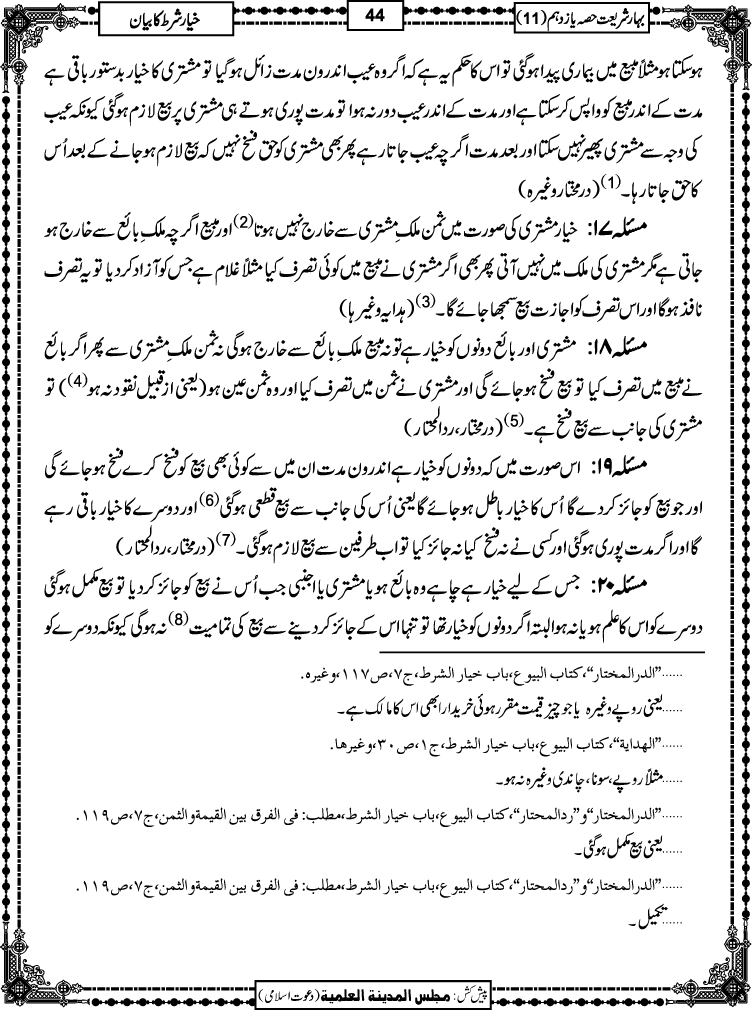 بہار شریعت حصہ یازدہم (11)
44
خیار شرط کا بیان
ہوسکتا ہو مثلاً مبیع میں بیماری پیدا ہوگئی تو اس کا حکم یہ ہے کہ اگر وہ عیب اندرون مدت زائل ہوگیا تو مشتری کا خیار بدستور باقی ہے
مدت کے اندر مبیع کو واپس کرسکتا ہے اور مدت کے اندر عیب دور نہ ہوا تو مدت پوری ہوتے ہی مشتری پر بیع لازم ہوگئی کیونکہ عیب
کی وجہ سے مشتری پھیر نہیں سکتا اور بعد مدت اگرچہ عیب جاتا رہے پھر بھی مشتری کو حق فسخ نہیں کہ بیع لازم ہوجانے کے بعد اُس
کا حق جاتا رہا۔(1) (درمختار وغیرہ)
مسئلہ ۱۷: خیار مشتری کی صورت میں ثمن ملکِ مشتری سے خارج نہیں ہوتا(2) اور مبیع اگرچہ ملکِ بائع سے خارج ہو
جاتی ہے مگر مشتری کی ملک میں نہیں آتی پھر بھی اگر مشتری نے مبیع میں کوئی تصرف کیا مثلاً غلام ہے جس کو آزاد کردیا تو یہ تصرف
نافذ ہوگا اور اس تصرف کو اجازت بیع سمجھا جائے گا۔(3) (ہدایہ وغیرہا)
مسئلہ ۱۸: مشتری اور بائع دونوں کو خیار ہے تو نہ مبیع ملکِ بائع سے خارج ہوگی نہ ثمن ملکِ مشتری سے پھر اگر بائع
نے مبیع میں تصرف کیا تو بیع فسخ ہوجائے گی اور مشتری نے ثمن میں تصرف کیا اور وہ ثمن عین ہو (یعنی از قبیل نقود نہ ہو(4)) تو
مشتری کی جانب سے بیع فسخ ہے۔(5) (درمختار، ردالمحتار)
مسئلہ ۱۹: اس صورت میں کہ دونوں کو خیار ہے اندرون مدت ان میں سے کوئی بھی بیع کو فسخ کرے فسخ ہوجائے گی
اور جو بیع کو جائز کردے گا اُس کا خیار باطل ہوجائے گا یعنی اُس کی جانب سے بیع قطعی ہوگئی(6) اور دوسرے کا خیار باقی رہے
گا اور اگر مدت پوری ہوگئی اور کسی نے نہ فسخ کیا نہ جائز کیا تو اب طرفین سے بیع لازم ہوگئی۔(7) (درمختار، ردالمحتار)
مسئلہ ۲۰: جس کے لیے خیار ہے چاہے وہ بائع ہو یا مشتری یا اجنبی جب اُس نے بیع کو جائز کردیا تو بیع مکمل ہوگئی
دوسرے کو اس کا علم ہو یا نہ ہو البتہ اگر دونوں کو خیار تھا تو تنہا اس کے جائز کردینے سے بیع کی تمامیت(8) نہ ہوگی کیونکہ دوسرے کو
......”الدرالمختار“، كتاب البيوع، باب خيار الشرط، ج٧، ص١١٧، وغيره.
......یعنی روپے وغیرہ یا جو چیز قیمت مقرر ہوئی خریدار ابھی اس کا مالک ہے۔
......”الهداية“، كتاب البيوع، باب خيار الشرط، ج١، ص٣٠، وغيرها.
......مثلاً روپے، سونا، چاندی وغیرہ نہ ہو۔
......”الدرالمختار“ و ”ردالمحتار“، كتاب البيوع، باب خيار الشرط، مطلب: في الفرق بين القيمة والثمن، ج٧، ص١١٩.
......یعنی بیع مکمل ہوگئی۔
......”الدرالمختار“ و ”ردالمحتار“، كتاب البيوع، باب خيار الشرط، مطلب: في الفرق بين القيمة والثمن، ج٧، ص١١٩.
......تکمیل۔
پیش کش: مجلس المدينة العلمية (دعوت اسلامی)